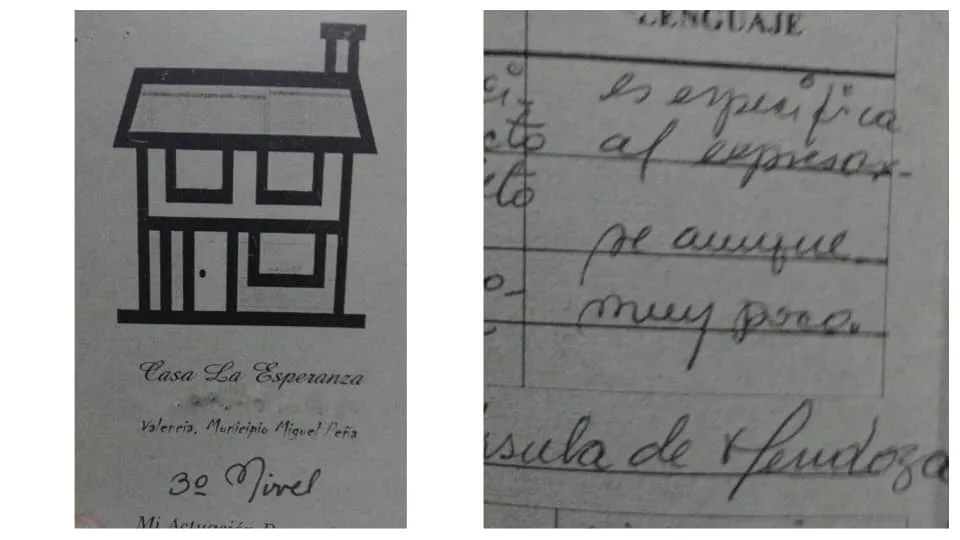 Casa La Esperanza
Valencia, Municipio Miguel Peña
3º Nivel
Mi Actuación
LENGUAJE
es específica
al expresar-
se aunque
muy poco.
de Mendoza